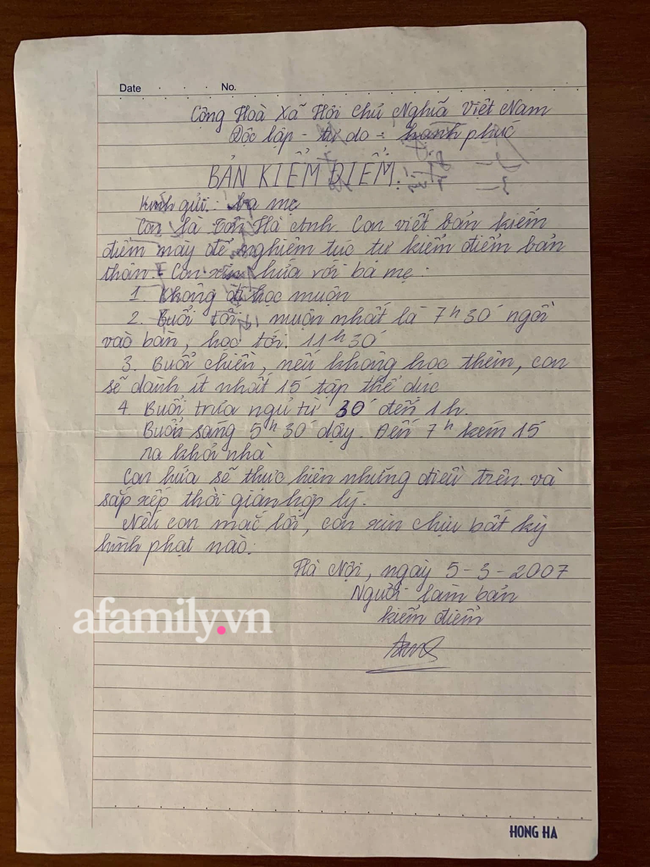 Date No.
Cộng Hoà Xã Hội Chủ Nghĩa Việt Nam
Độc lập - tự do - hạnh phúc
BẢN KIỂM ĐIỂM:
Kính gửi: ba mẹ
Con là Hà Anh. Con viết bản kiểm
điểm này để nghiêm túc tự kiểm điểm bản
thân. Con xin hứa với ba mẹ:
1. Không đi học muộn
2. Buổi tối, muộn nhất là 7h30' ngồi
vào bàn, học tới 11h30'
3. Buổi chiều, nếu không học thêm, con
sẽ dành ít nhất 15' tập thể dục
4. Buổi trưa ngủ từ 30' đến 1h.
Buổi sáng 5h30' dậy. Đến 7h kém 15
ra khỏi nhà
Con hứa sẽ thực hiện những điều trên và
sắp xếp thời gian hợp lý.
Nếu con mắc lỗi, con xin chịu bất kỳ
hình phạt nào.
Hà Nội, ngày 5-3-2007
Người làm bản
kiểm điểm
afamily.vn
HONG HA